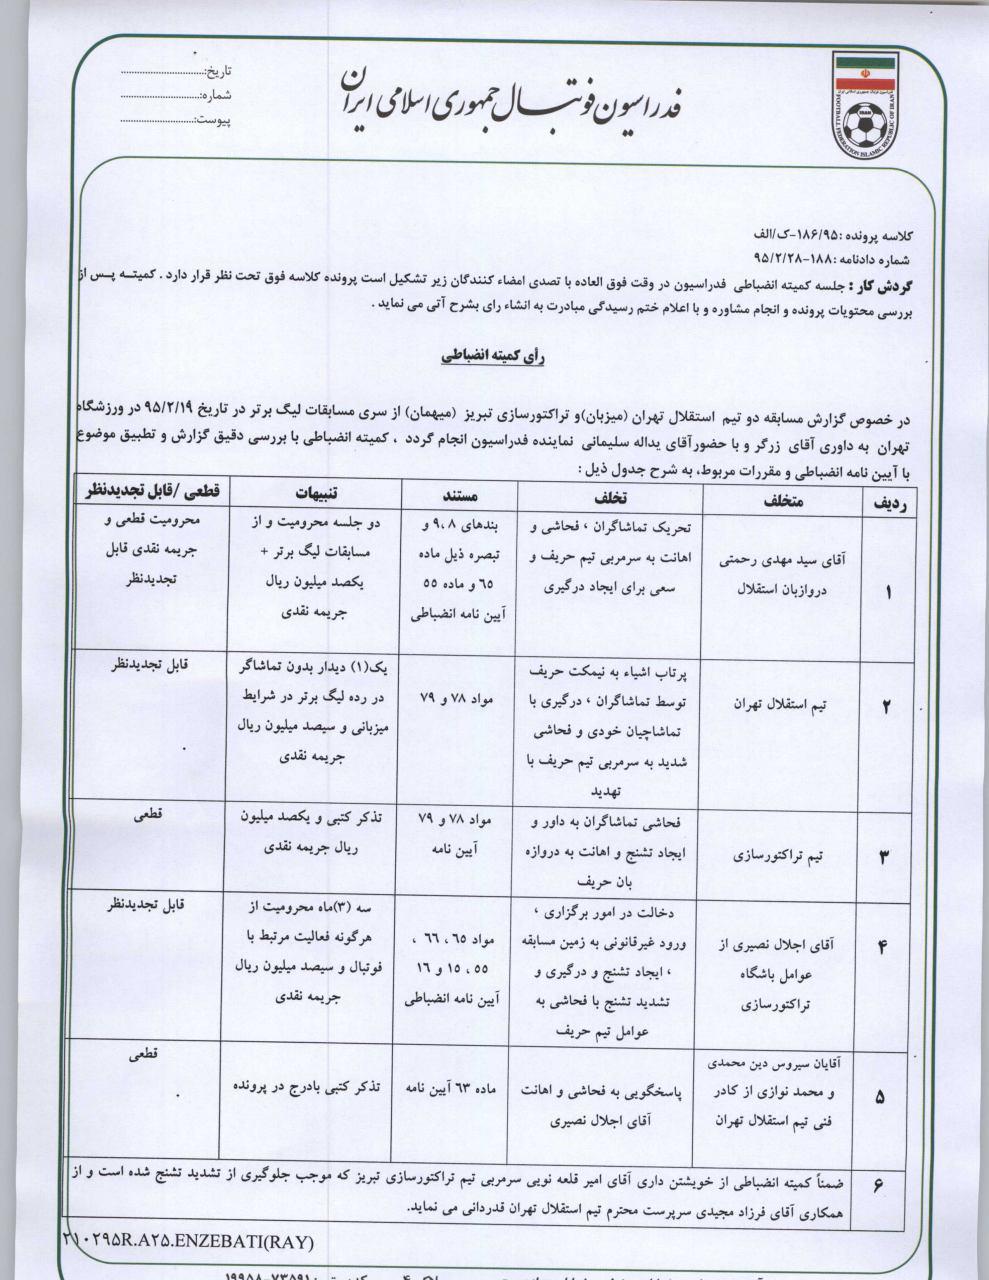 فدراسیون فوتبال جمهوری اسلامی ایران
تاریخ:............................
شماره:............................
پیوست:............................
IRAN
FOOTBALL FEDERATION ISLAMIC REPUBLIC OF IRAN
کلاسه پرونده :۱۸۶/۹۵-ک/الف
شماره دادنامه :۱۸۸-۹۵/۲/۲۸
گردش کار : جلسه کمیته انضباطی فدراسیون در وقت فوق العاده با تصدی امضاء کنندگان زیر تشکیل است پرونده کلاسه فوق تحت نظر قرار دارد . کمیته پس از
بررسی محتویات پرونده و انجام مشاوره و با اعلام ختم رسیدگی مبادرت به انشاء رای بشرح آتی می نماید .
رأی کمیته انضباطی
در خصوص گزارش مسابقه دو تیم استقلال تهران (میزبان)و تراکتورسازی تبریز (میهمان) از سری مسابقات لیگ برتر در تاریخ ۹۵/۲/۱۹ در ورزشگاه
تهران به داوری آقای زرگر و با حضورآقای یداله سلیمانی نماینده فدراسیون انجام گردد ، کمیته انضباطی با بررسی دقیق گزارش و تطبیق موضوع
با آیین نامه انضباطی و مقررات مربوط، به شرح جدول ذیل :
ردیف متخلف تخلف مستند تنبیهات قطعی /قابل تجدیدنظر
۱
آقای سید مهدی رحمتی
دروازبان استقلال
تحریک تماشاگران ، فحاشی و
اهانت به سرمربی تیم حریف و
سعی برای ایجاد درگیری
بندهای ۹،۸ و
تبصره ذیل ماده
۶۵ و ماده ۵۵
آیین نامه انضباطی
دو جلسه محرومیت و از
مسابقات لیگ برتر +
یکصد میلیون ریال
جریمه نقدی
محرومیت قطعی و
جریمه نقدی قابل
تجدیدنظر
۲
تیم استقلال تهران
پرتاب اشیاء به نیمکت حریف
توسط تماشاگران ، درگیری با
تماشاچیان خودی و فحاشی
شدید به سرمربی تیم حریف با
تهدید
مواد ۷۸ و ۷۹
یک(۱) دیدار بدون تماشاگر
در رده لیگ برتر در شرایط
میزبانی و سیصد میلیون ریال
جریمه نقدی
قابل تجدیدنظر
۳
تیم تراکتورسازی
فحاشی تماشاگران به داور و
ایجاد تشنج و اهانت به دروازه
بان حریف
مواد ۷۸ و ۷۹
آیین نامه
تذکر کتبی و یکصد میلیون
ریال جریمه نقدی
قطعی
۴
آقای اجلال نصیری از
عوامل باشگاه
تراکتورسازی
دخالت در امور برگزاری ،
ورود غیرقانونی به زمین مسابقه
، ایجاد تشنج و درگیری و
تشدید تشنج با فحاشی به
عوامل تیم حریف
مواد ۶۵ ، ۶۶ ،
۵۵ ، ۱۵ و ۱۶
آیین نامه انضباطی
سه (۳)ماه محرومیت از
هرگونه فعالیت مرتبط با
فوتبال و سیصد میلیون ریال
جریمه نقدی
قابل تجدیدنظر
۵
آقایان سیروس دین محمدی
و محمد نوازی از کادر
فنی تیم استقلال تهران
پاسخگویی به فحاشی و اهانت
آقای اجلال نصیری
ماده ۶۳ آیین نامه
تذکر کتبی بادرج در پرونده
قطعی
۶
ضمناً کمیته انضباطی از خویشتن داری آقای امیر قلعه نویی سرمربی تیم تراکتورسازی تبریز که موجب جلوگیری از تشدید تشنج شده است و از
همکاری آقای فرزاد مجیدی سرپرست محترم تیم استقلال تهران قدردانی می نماید.
۲۱۰۲۹۵R.A۲۵.ENZEBATI(RAY)